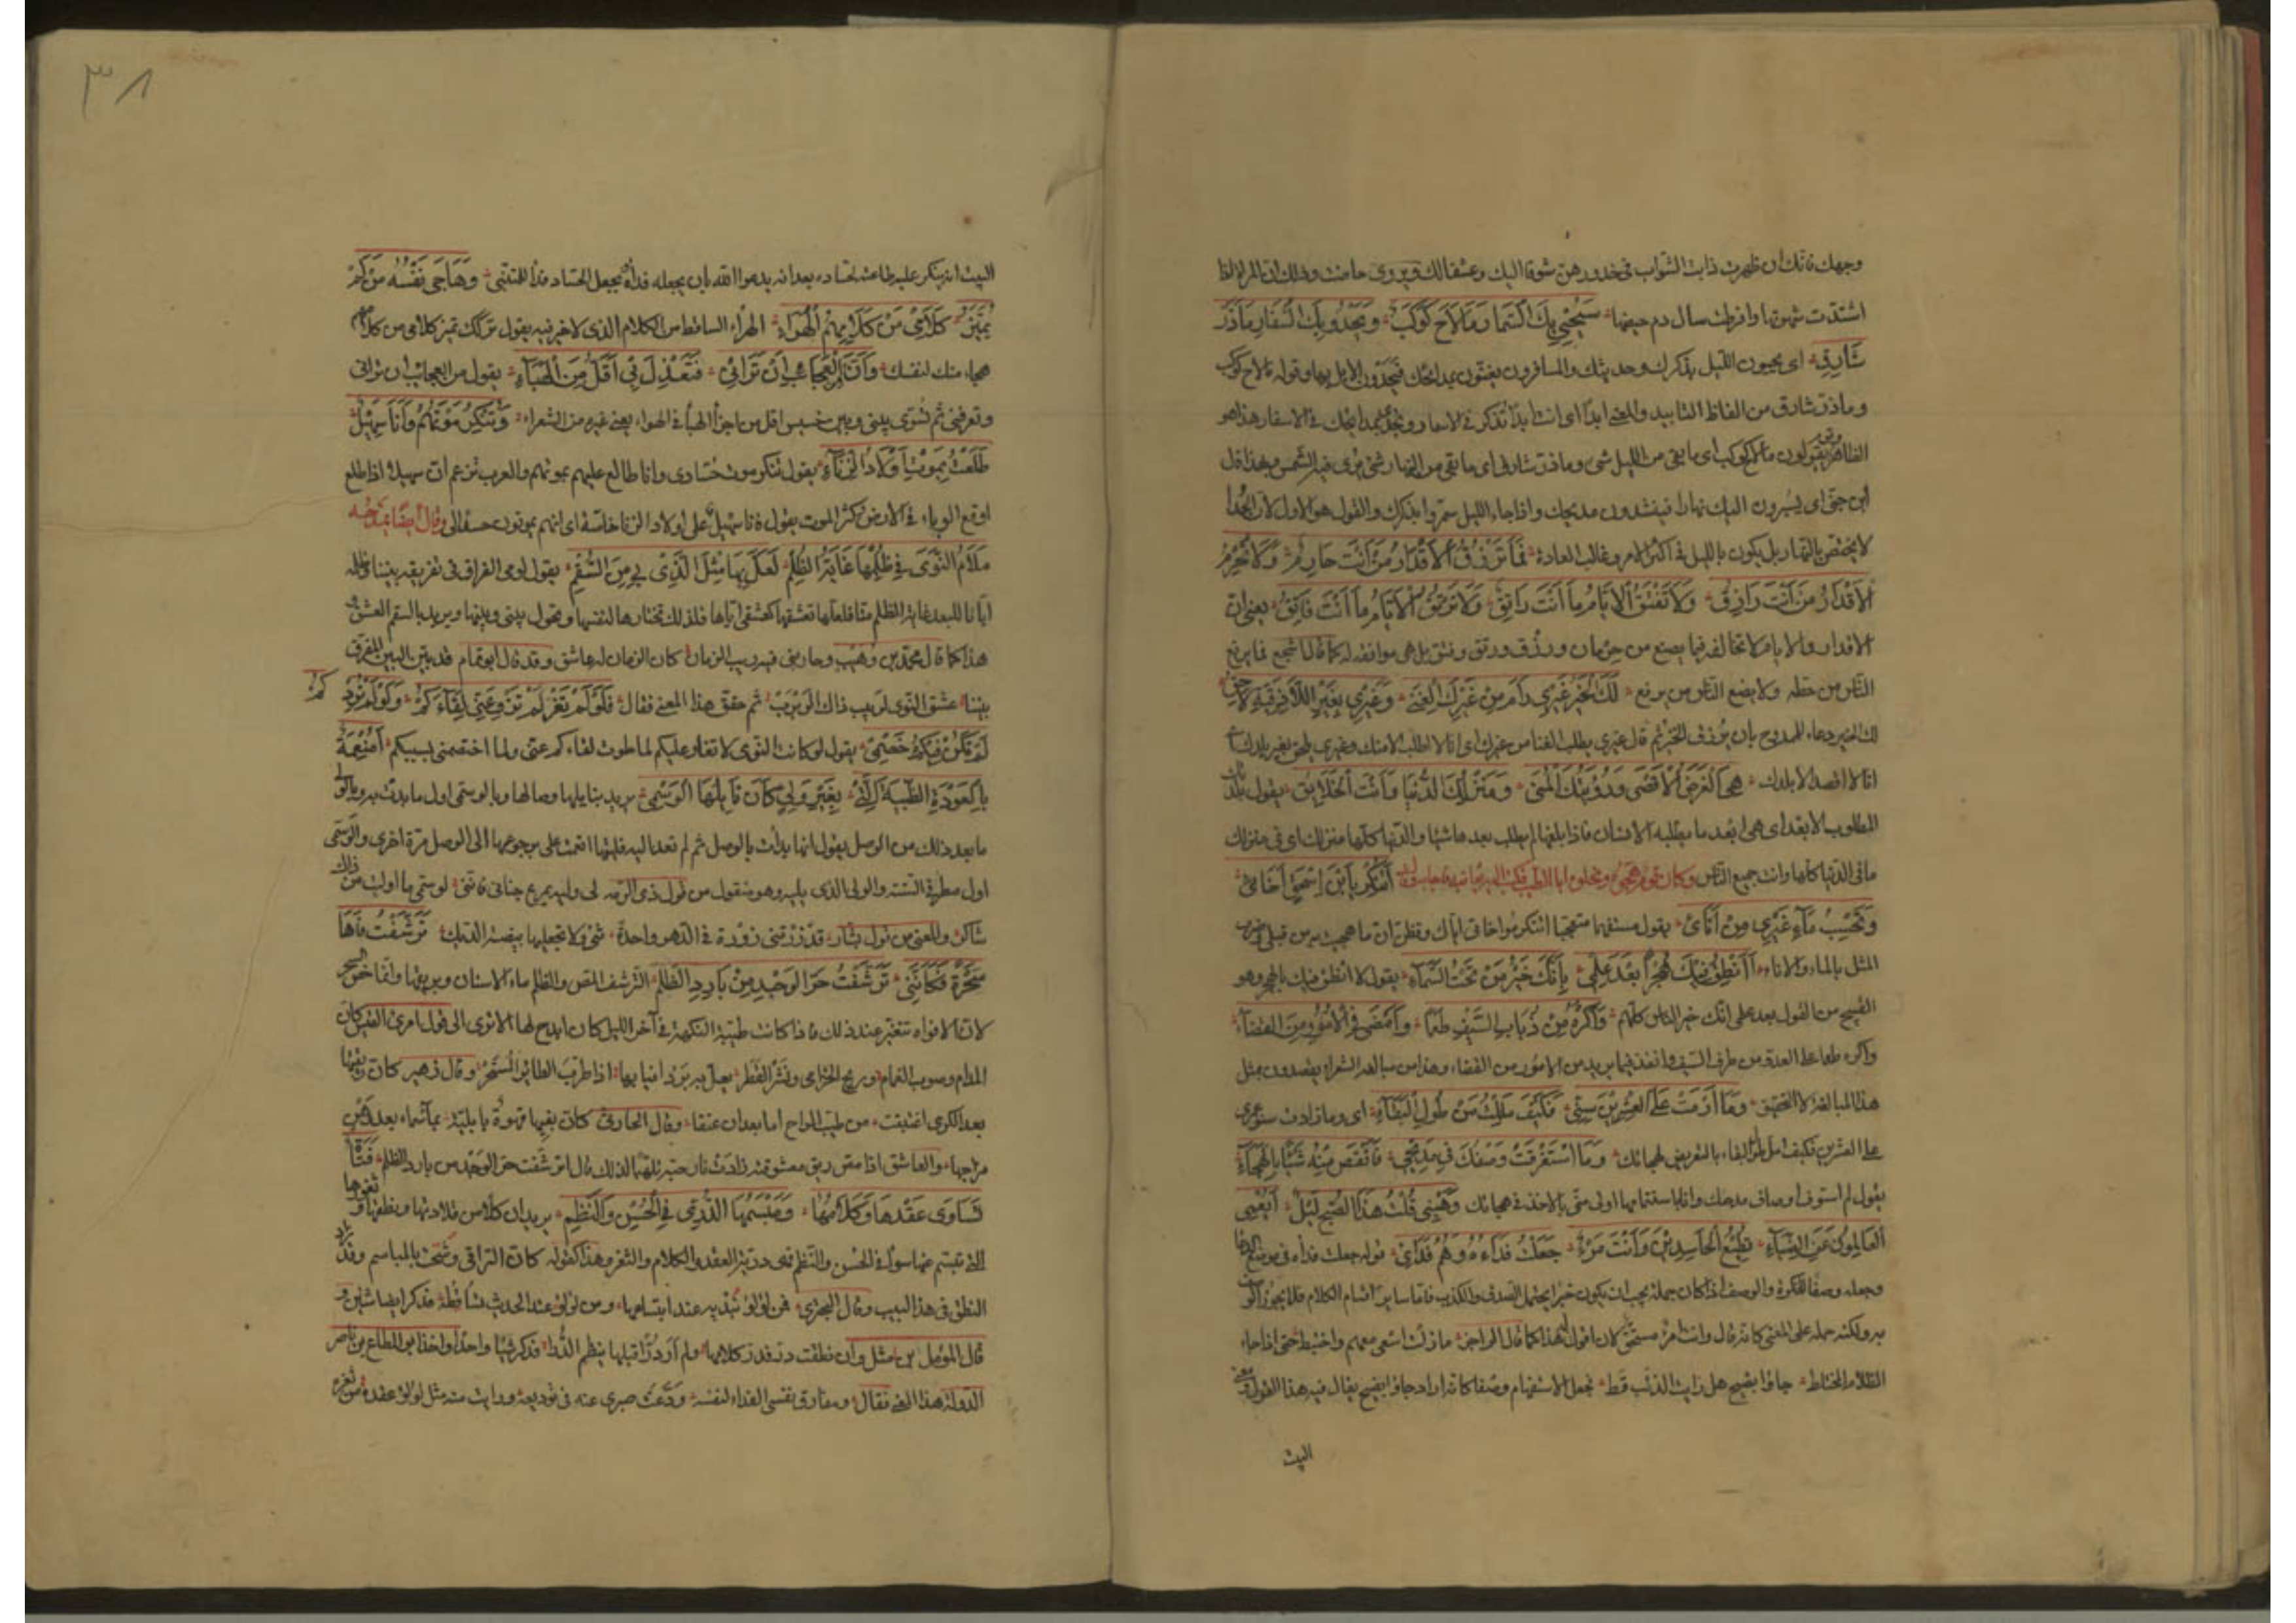 وجهك فانك ان ظهرت ذابت الشواب في خدورهن شوقا اليك وعشقا لك ويروى حاضت وذلك ان المراة اذا
اشتدت شهوتها وافرطت سال دم حيضها سَيُحْيِي بِكَ السُّمَّارُ مَا لَاحَ كَوْكَبٌ وَيَحْدُو بِكَ السُّفَّارُ مَا ذَرَّ
شَارِقُ اى يحيون الليل بذكرك وحديثك والمسافرون يغنون بمدائحك فيحدون الابل بها وقوله ما لاح كوكب
وما ذر شارق من الفاظ التابيد والمعنى ابدا اى انت ابدا تذكر في الاسمار ويحدى بمدائحك في الاسفار هذا هو
الظاهر ويقولون ما لاح كوكب اى ما بقى من الليل شى وما ذر شارق اى ما بقى من النهار شى يرى فيه الشمس وبهذا قال
ابن جنى اى يسيرون اليك نهارا فينشدون مديحك واذا جاء الليل سمروا بذكرك والقول هو الاول لان الحدا
لا يختص بالنهار بل يكون بالليل في اكثر الامر وغالب العادة فَمَا تَرْزُقُ الْأَقْدَارُ مَنْ أَنْتَ حَارِمٌ وَلَا تَحْرِمُ
الْأَقْدَارُ مَنْ أَنْتَ رَازِقُ وَلَا تَفْتُقُ الْأَيَّامُ مَا أَنْتَ رَاتِقٌ وَلَا تَرْتُقُ الْأَيَّامُ مَا أَنْتَ فَاتِقُ يعنى ان
الاقدار والايام لا تخالفه فيما يصنع من حرمان ورزق ورتق وفتق بل هى موافقة له كما قال اشجع فما يرفع
الناس من حطه ولا يضع الناس من يرفع لَكَ الْخَيْرُ غَيْرِي رَامَ مِنْ غَيْرِكَ الْغِنَى وَغَيْرِي بِغَيْرِ اللَّاذِقِيَّةِ لَاحِقُ
لك الخير دعاء للممدوح بان يرزق الخير ثم قال غيرى يطلب الغنا من غيرك اى انا لا اطلب الا منك وغيرى يلحق بغير بلدك
انا لا اقصد الا بلدك هِيَ الْغَرَضُ الْأَقْصَى وَرُؤْيَتُكَ الْمُنَى وَمَنْزِلُكَ الدُّنْيَا وَأَنْتَ الْخَلَائِقُ يقول بلدك
المطلوب الابعد اى هى ابعد ما يطلبه الانسان فاذا بلغها لم يطلب بعدها شيئا والدنيا كلها منزلك اى في منزلك
ما في الدنيا كلها وانت جميع الناس وكان قوم هجوه ونحلوه ابا الطيب فكتب اليه يعاتبه فاجابه أَتُنْكِرُ يَابْنَ إِسْحٰقٍ إِخَائِي
وَتَحْسِبُ مَاءَ غَيْرِي مِنْ إِنَائِي يقول مستفهما متعجبا اتنكر مواخاتى اياك وتظن ان ما هجيت به من قبلى وضرب
المثل بالماء والاناء أَأَنْطِقُ فِيكَ هُجْرًا بَعْدَ عِلْمِي بِأَنَّكَ خَيْرُ مَنْ تَحْتَ السَّمَاءِ يقول لا انطق فيك بالهجر وهو
القبيح من القول بعد علمى انك خير الناس كلهم وَأَكْرَهُ مِنْ ذُبَابِ السَّيْفِ طَعْمًا وَأَمْضَى فِي الْأُمُورِ مِنَ الْقَضَاءِ
واكره طعما على العدو من طرف السيف وانفذ فيما يريد من الامور من القضاء وهذا من مبالغة الشعراء يقصدون بمثل
هذا المبالغة لا التحقيق وَمَا أَرْمَتْ عَلَى الْعِشْرِينَ سِنِّي فَكَيْفَ مَلِلْتُ مِنْ طُولِ الْبَقَاءِ اى وما زادت سنو عمرى
على العشرين فكيف امل طول البقاء بالتعريض لهجائك وَمَا اسْتَغْرَقْتُ وَصْفَكَ فِي مَدِيحِي فَأَنْقُصَ مِنْهُ شَيْئًا بِالْهِجَاءِ
يقول لم استوف اوصاف مدحك وانا باستتمامها اولى منى بالاخذ في هجائك وَهَبْنِي قُلْتُ هَذَا الصُّبْحُ لَيْلٌ أَيَعْمَى
الْعَالِمُونَ عَنِ الضِّيَاءِ تُطِيعُ الْحَاسِدِينَ وَأَنْتَ مَرْءٌ جُعِلْتُ فِدَاءَهُ وَهُمُ فِدَائِي قوله جعلت فداءه في موضع
وجعله وصفا للنكرة والوصف اذا كان جملة يجب ان يكون خبرا يحتمل الصدق والكذب فاما سائر اقسام الكلام فلا يجوز الوصف
به ولكنه حمله على المعنى كانه قال وانت مرء مستحق لان اقول هذا كما قال الراجز ما زلت اسعى معهم واختبط حتى اذا جاء
الظلام المختلط جاؤا بضيح هل رايت الذئب قط فجعل الاستفهام وصفا كانه اراد جاؤا بضيح يقال فيه هذا القول
البيت
٣٨
البيت انه ينكر عليه طاعته لحساده بعد انه يدعوا الله بان يجعله فداه ويجعل الحساد فدا للمتنبى وَهَاجِي نَفْسِهِ مَنْ لَمْ
يُمَيِّزْ كَلَامِي مِنْ كَلَامِهِمُ الْهُرَاءِ الهراء الساقط من الكلام الذى لا خير فيه يقول تركك تميز كلامى من كلامهم
هجاء منك لنفسك وَإِنَّ مِنَ الْعَجَائِبِ أَنْ تَرَانِي فَتَعْدِلَ بِي أَقَلَّ مِنَ الْهَبَاءِ يقول من العجائب ان ترانى
وتعرفنى ثم تسوى بينى وبين خسيس اقل من اجزا الهبا في الهواء يعنى غيره من الشعراء وَتُنْكِرُ مَوْتَهُمْ وَأَنَا سُهَيْلٌ
طَلَعْتُ بِمَوْتِ أَوْلَادِ الزِّنَاءِ يقول تنكر موت حسادى وانا طالع عليهم بموتهم والعرب تزعم ان سهيلا اذا طلع
اوقع الوباء في الارض وكثر الموت يقول فانا سهيل على اولاد الزنا خاصة اى انهم يموتون حسدا لى وقال ايضا يمدحه
مَلَامُ النَّوَى فِي ظُلْمِهَا غَايَةُ الظُّلْمِ لَعَلَّ بِهَا مِثْلَ الَّذِي بِي مِنَ السُّقْمِ يقول لومى الفراق في تفريقه بيننا وظلمه
ايانا للبعد غاية الظلم منا فلعلها تعشقها كعشقى اياها فلذلك تختارها لنفسها وتحول بينى وبينها ويريد بالسقم العشق
هذا كما قال محمد بن وهيب وحاربنى فيه ريب الزمان كان الزمان له عاشق وقد قال ابو تمام
بيننا عشق النوى لربيب ذاك الربرب ثم حقق هذا المعنى فقال فَلَوْ لَمْ تَغَرْ لَمْ تَزْوِ عَنِّي لِقَاءَكُمْ وَلَوْ لَمْ تُرِدْكُمْ
لَمْ تَكُنْ فِيكُمُ خَصْمِي يقول لو كانت النوى لا تغار عليكم لما طوت لقاءكم عنى ولما اختصمتنى بسببكم أَمُنْعِمَةٌ
بِالْعَوْدَةِ الظَّبْيَةُ الَّتِي بِغَيْرِ وَلِيٍّ كَانَ نَائِلُهَا الْوَسْمِي يريد بنايلها وصالها وبالوسمى اول ما بدت به وبالولى
ما بعد ذلك من الوصل يقول انها بدات بالوصل ثم لم تعد اليه فليتها انعمت على برجوعها الى الوصل مرة اخرى والوسمى
اول مطر في السنة والولى الذى يليه وهو منقول من قول ذى الرمة لنى ولية يمرع جنابى فاننى لوسمى ما اوليت من ذاك
شاكر والمعنى من قول بشار قد زرتنى زورة في الدهر واحدة ثنى ولا تجعليها بيضة الديك تَرَشَّفْتُ فَاهَا
سُحْرَةً فَكَأَنَّنِي تَرَشَّفْتُ حَرَّ الْوَجْدِ مِنْ بَارِدِ الظَّلْمِ الترشف المص والظلم ماء الاسنان وبريقها وانما خص السحر
لان الافواه تتغير عند ذلك فاذا كانت طيبة النكهة في آخر الليل كان امدح لها الا ترى الى قول امرئ القيس كان
المدام وصوب الغمام وريح الخزامى ونشر القطر يعل به برد انيابها اذا طرب الطائر المستحر وقال زهير كان ريقتها
بعد الكرى اغتبقت من طيب الراح لما بعد ان عتقا وقال الحارثى كان بفيها قهوة بابلية بماء سماء بعد وهن
مزاجها والعاشق اذا مص ريق معشوقته زادت نار حبه تلهبا لذلك قال ترشفت حر الوجد من بارد الظلم فَتَاةٌ
تَسَاوَى عِقْدُهَا وَكَلَامُهَا وَمَبْسِمُهَا الدُّرِّيُّ فِي الْحُسْنِ وَالنَّظْمِ يريد ان كلا من قلادتها ونطقها وثغرها
التى تبتسم عنها سواء في الحسن والنظم فهى درية العقد والكلام والثغر وهذا كقوله كان التراقى وشحت بالمباسم وقد زاد
النطق في هذا البيت وقال البحترى فمن لؤلؤ تبديه عند ابتسامها ومن لؤلؤ عند الحديث تساقطه فذكر ايضا شيئين و
قال المؤمل بن مثل وان نطقت در فدر كلامها ولم ار درا قبلها ينظم الدرا فذكر شيئا واحدا واخذ ابو المطاع بن ناصر
الدولة هذا المعنى فقال ومفارق نفسى الفداء لنفسه ودعت صبرى عنه في توديعه ورايت منه مثل لؤلؤ عقده من ثغره